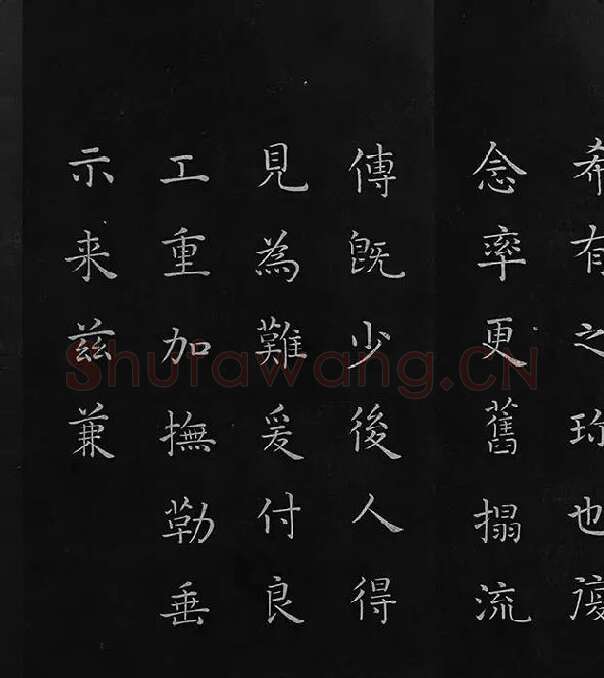 希有之珎也
念率更舊搨流
傳既少後人得
見為難爰付良
工重加撫勒垂
示来兹兼
Shufawang.CN